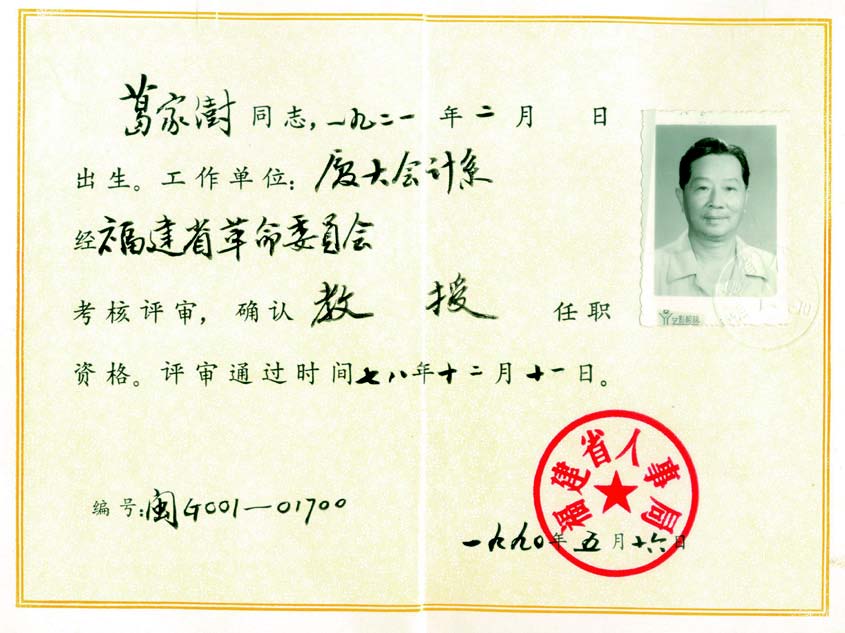 葛家澍同志，一九二一年二月 日
出生。工作单位：厦大会计系
经福建省革命委员会
考核评审，确认教授任职
资格。评审通过时间七八年十二月十一日。
福建省人事局
编号：闽G001—01700
一九九〇年五月十六日